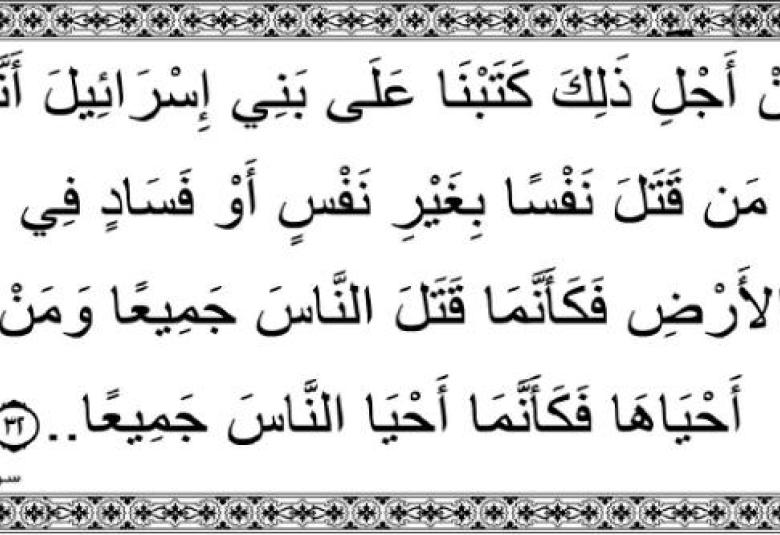 أَجْلِ ذَلِكَ كَتَبْنَا عَلَى بَنِي إِسْرَائِيلَ
مَن قَتَلَ نَفْسًا بِغَيْرِ نَفْسٍ أَوْ فَسَادٍ فِي
الأَرْضِ فَكَأَنَّمَا قَتَلَ النَّاسَ جَمِيعًا وَمَنْ
أَحْيَاهَا فَكَأَنَّمَا أَحْيَا النَّاسَ جَمِيعًا.. ٣٢